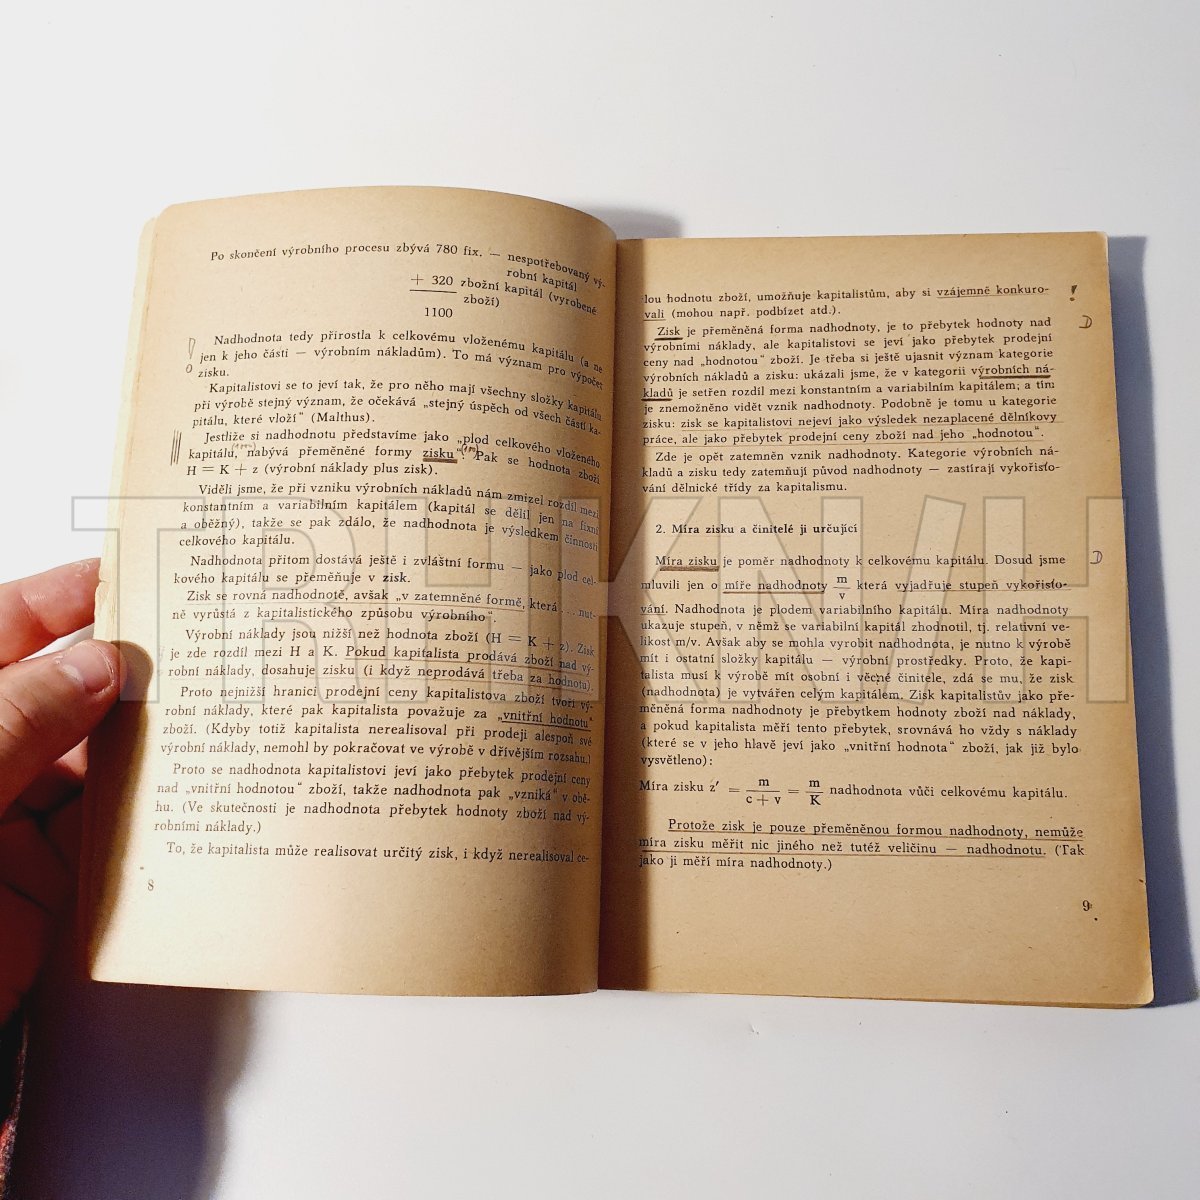 Po skončení výrobního procesu zbývá 780 fix. — nespotřebovaný vý-
robní kapitál
+ 320 zbožní kapitál (vyrobené
zboží)
1100
Nadhodnota tedy přirostla k celkovému vloženému kapitálu (a ne
jen k jeho části — výrobním nákladům). To má význam pro výpočet
zisku.
Kapitalistovi se to jeví tak, že pro něho mají všechny složky kapitálu
při výrobě stejný význam, že očekává „stejný úspěch od všech částí ka-
pitálu, které vloží“ (Malthus).
Jestliže si nadhodnotu představíme jako „plod celkového vloženého
kapitálu, nabývá přeměněné formy zisku“. Pak se hodnota zboží
H = K + z (výrobní náklady plus zisk).
Viděli jsme, že při vzniku výrobních nákladů nám zmizel rozdíl mezi
konstantním a variabilním kapitálem (kapitál se dělil jen na fixní
a oběžný), takže se pak zdálo, že nadhodnota je výsledkem činnosti
celkového kapitálu.
Nadhodnota přitom dostává ještě i zvláštní formu — jako plod cel-
kového kapitálu se přeměňuje v zisk.
Zisk se rovná nadhodnotě, avšak „v zatemněné formě, která ... nut-
ně vyrůstá z kapitalistického způsobu výrobního“.
Výrobní náklady jsou nižší než hodnota zboží (H = K + z). Zisk
je zde rozdíl mezi H a K. Pokud kapitalista prodává zboží nad vý-
robní náklady, dosahuje zisku (i když neprodává třeba za hodnotu).
Proto nejnižší hranici prodejní ceny kapitalistova zboží tvoří vý-
robní náklady, které pak kapitalista považuje za „vnitřní hodnotu“
zboží. (Kdyby totiž kapitalista nerealisoval při prodeji alespoň své
výrobní náklady, nemohl by pokračovat ve výrobě v dřívějším rozsahu.)
Proto se nadhodnota kapitalistovi jeví jako přebytek prodejní ceny
nad „vnitřní hodnotou“ zboží, takže nadhodnota pak „vzniká“ v obě-
hu. (Ve skutečnosti je nadhodnota přebytek hodnoty zboží nad vý-
robními náklady.)
To, že kapitalista může realisovat určitý zisk, i když nerealisoval ce-
8
lou hodnotu zboží, umožňuje kapitalistům, aby si vzájemně konkuro-
vali (mohou např. podbízet atd.).
Zisk je přeměněná forma nadhodnoty, je to přebytek hodnoty nad
výrobními náklady, ale kapitalistovi se jeví jako přebytek prodejní
ceny nad „hodnotou“ zboží. Je třeba si ještě ujasnit význam kategorie
výrobních nákladů a zisku: ukázali jsme, že v kategorii výrobních ná-
kladů je setřen rozdíl mezi konstantním a variabilním kapitálem; a tím
je znemožněno vidět vznik nadhodnoty. Podobně je tomu u kategorie
zisku: zisk se kapitalistovi nejeví jako výsledek nezaplacené dělníkovy
práce, ale jako přebytek prodejní ceny zboží nad jeho „hodnotou“.
Zde je opět zatemněn vznik nadhodnoty. Kategorie výrobních ná-
kladů a zisku tedy zatemňují původ nadhodnoty — zastírají vykořisťo-
vání dělnické třídy za kapitalismu.
2. Míra zisku a činitelé ji určující
Míra zisku je poměr nadhodnoty k celkovému kapitálu. Dosud jsme
mluvili jen o míře nadhodnoty m/v která vyjadřuje stupeň vykořisťo-
vání. Nadhodnota je plodem variabilního kapitálu. Míra nadhodnoty
ukazuje stupeň, v němž se variabilní kapitál zhodnotil, tj. relativní ve-
likost m/v. Avšak aby se mohla vyrobit nadhodnota, je nutno k výrobě
mít i ostatní složky kapitálu — výrobní prostředky. Proto, že kapi-
talista musí k výrobě mít osobní i věcné činitele, zdá se mu, že zisk
(nadhodnota) je vytvářen celým kapitálem. Zisk kapitalistův jako pře-
měněná forma nadhodnoty je přebytkem hodnoty zboží nad náklady,
a pokud kapitalista měří tento přebytek, srovnává ho vždy s náklady
(které se v jeho hlavě jeví jako „vnitřní hodnota“ zboží, jak již bylo
vysvětleno):
Míra zisku z′ = m/(c + v) = m/K nadhodnota vůči celkovému kapitálu.
Protože zisk je pouze přeměněnou formou nadhodnoty, nemůže
míra zisku měřit nic jiného než tutéž veličinu — nadhodnotu. (Tak
jako ji měří míra nadhodnoty.)
9
D
D
TRHKNIH